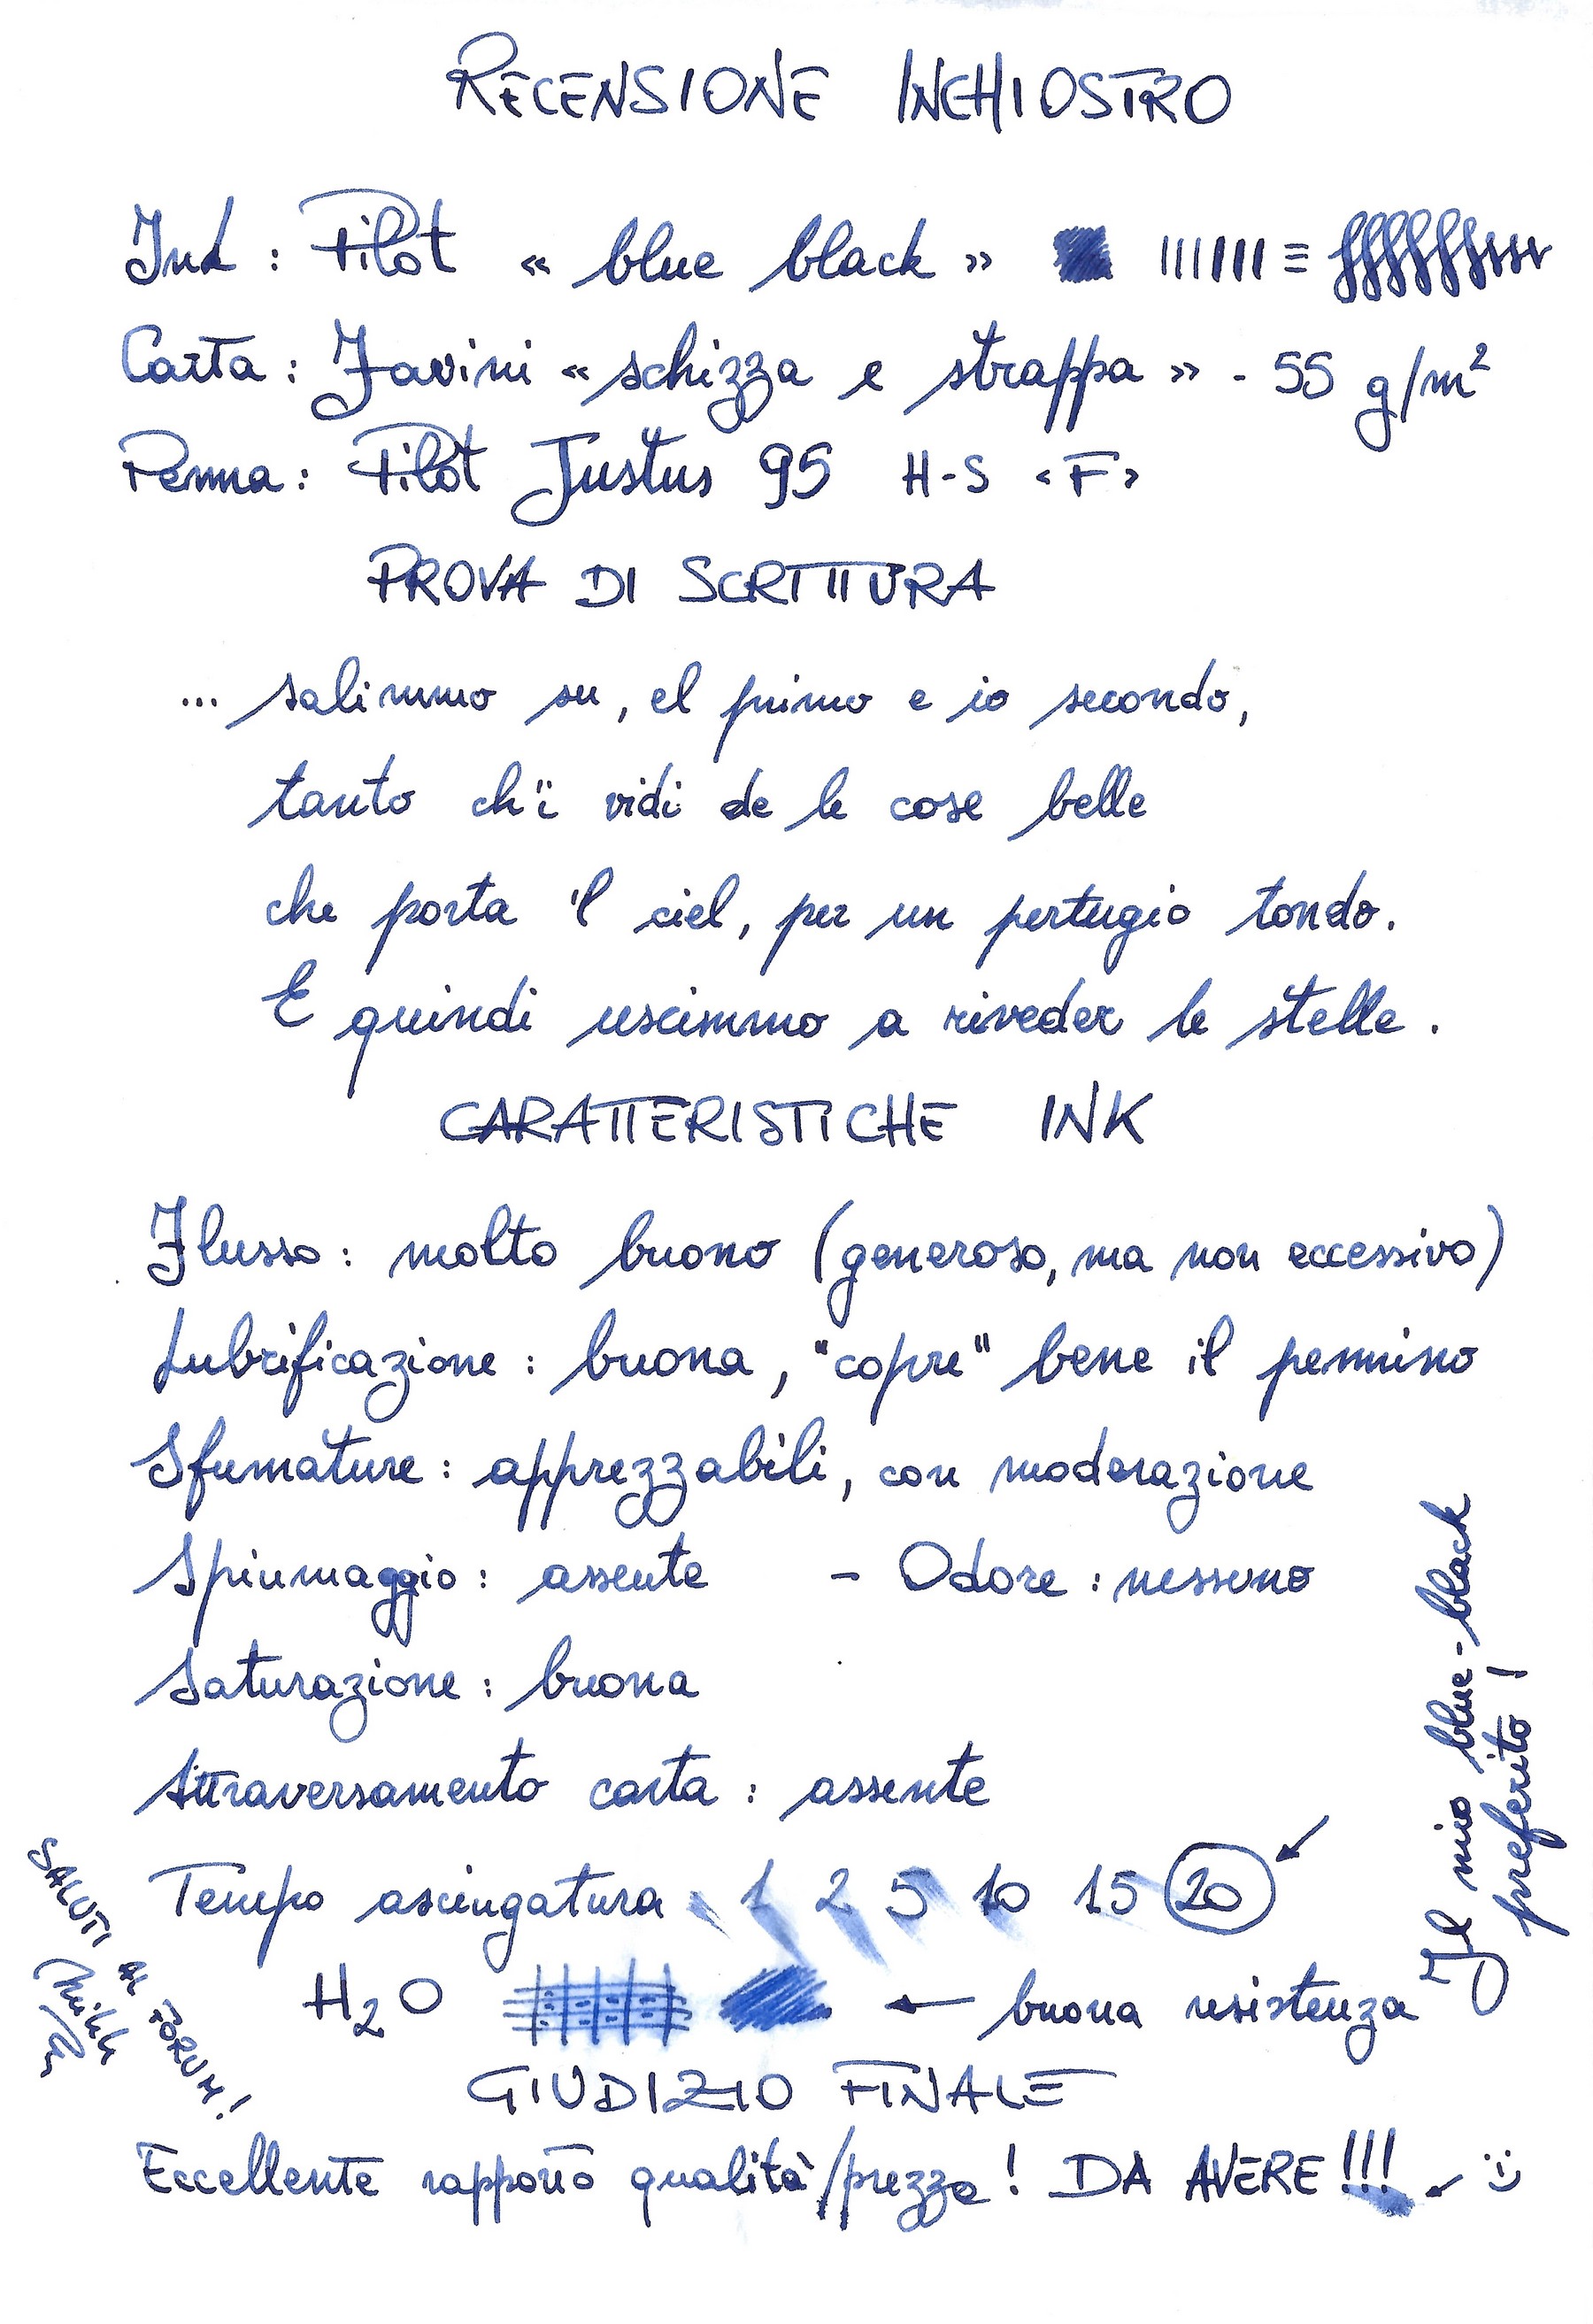 RECENSIONE INCHIOSTRO
Ink : Pilot « blue black »
Carta : Favini « schizza e strappa » - 55 g/m²
Penna : Pilot Justus 95 H-S <F>
PROVA DI SCRITTURA
... salimmo su, el primo e io secondo,
tanto ch'i vidi de le cose belle
che porta 'l ciel, per un pertugio tondo.
E quindi uscimmo a riveder le stelle.
CARATTERISTICHE INK
Flusso : molto buono (generoso, ma non eccessivo)
Lubrificazione : buona, "copre" bene il pennino
Sfumature : apprezzabili, con moderazione
Spiumaggio : assente - Odore : nessuno
Saturazione : buona
Attraversamento carta : assente
Tempo asciugatura : 1 2 5 10 15 20
H2O ← buona resistenza
Il mio blue-black
preferito !
SALUTI AL FORUM!
GIUDIZIO FINALE
Eccellente rapporto qualità/prezzo ! DA AVERE !!! :)